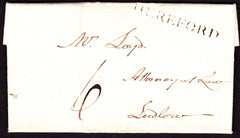 HEREFORD
Mr. Loyd.
Attorney at Law
Ludlow
6